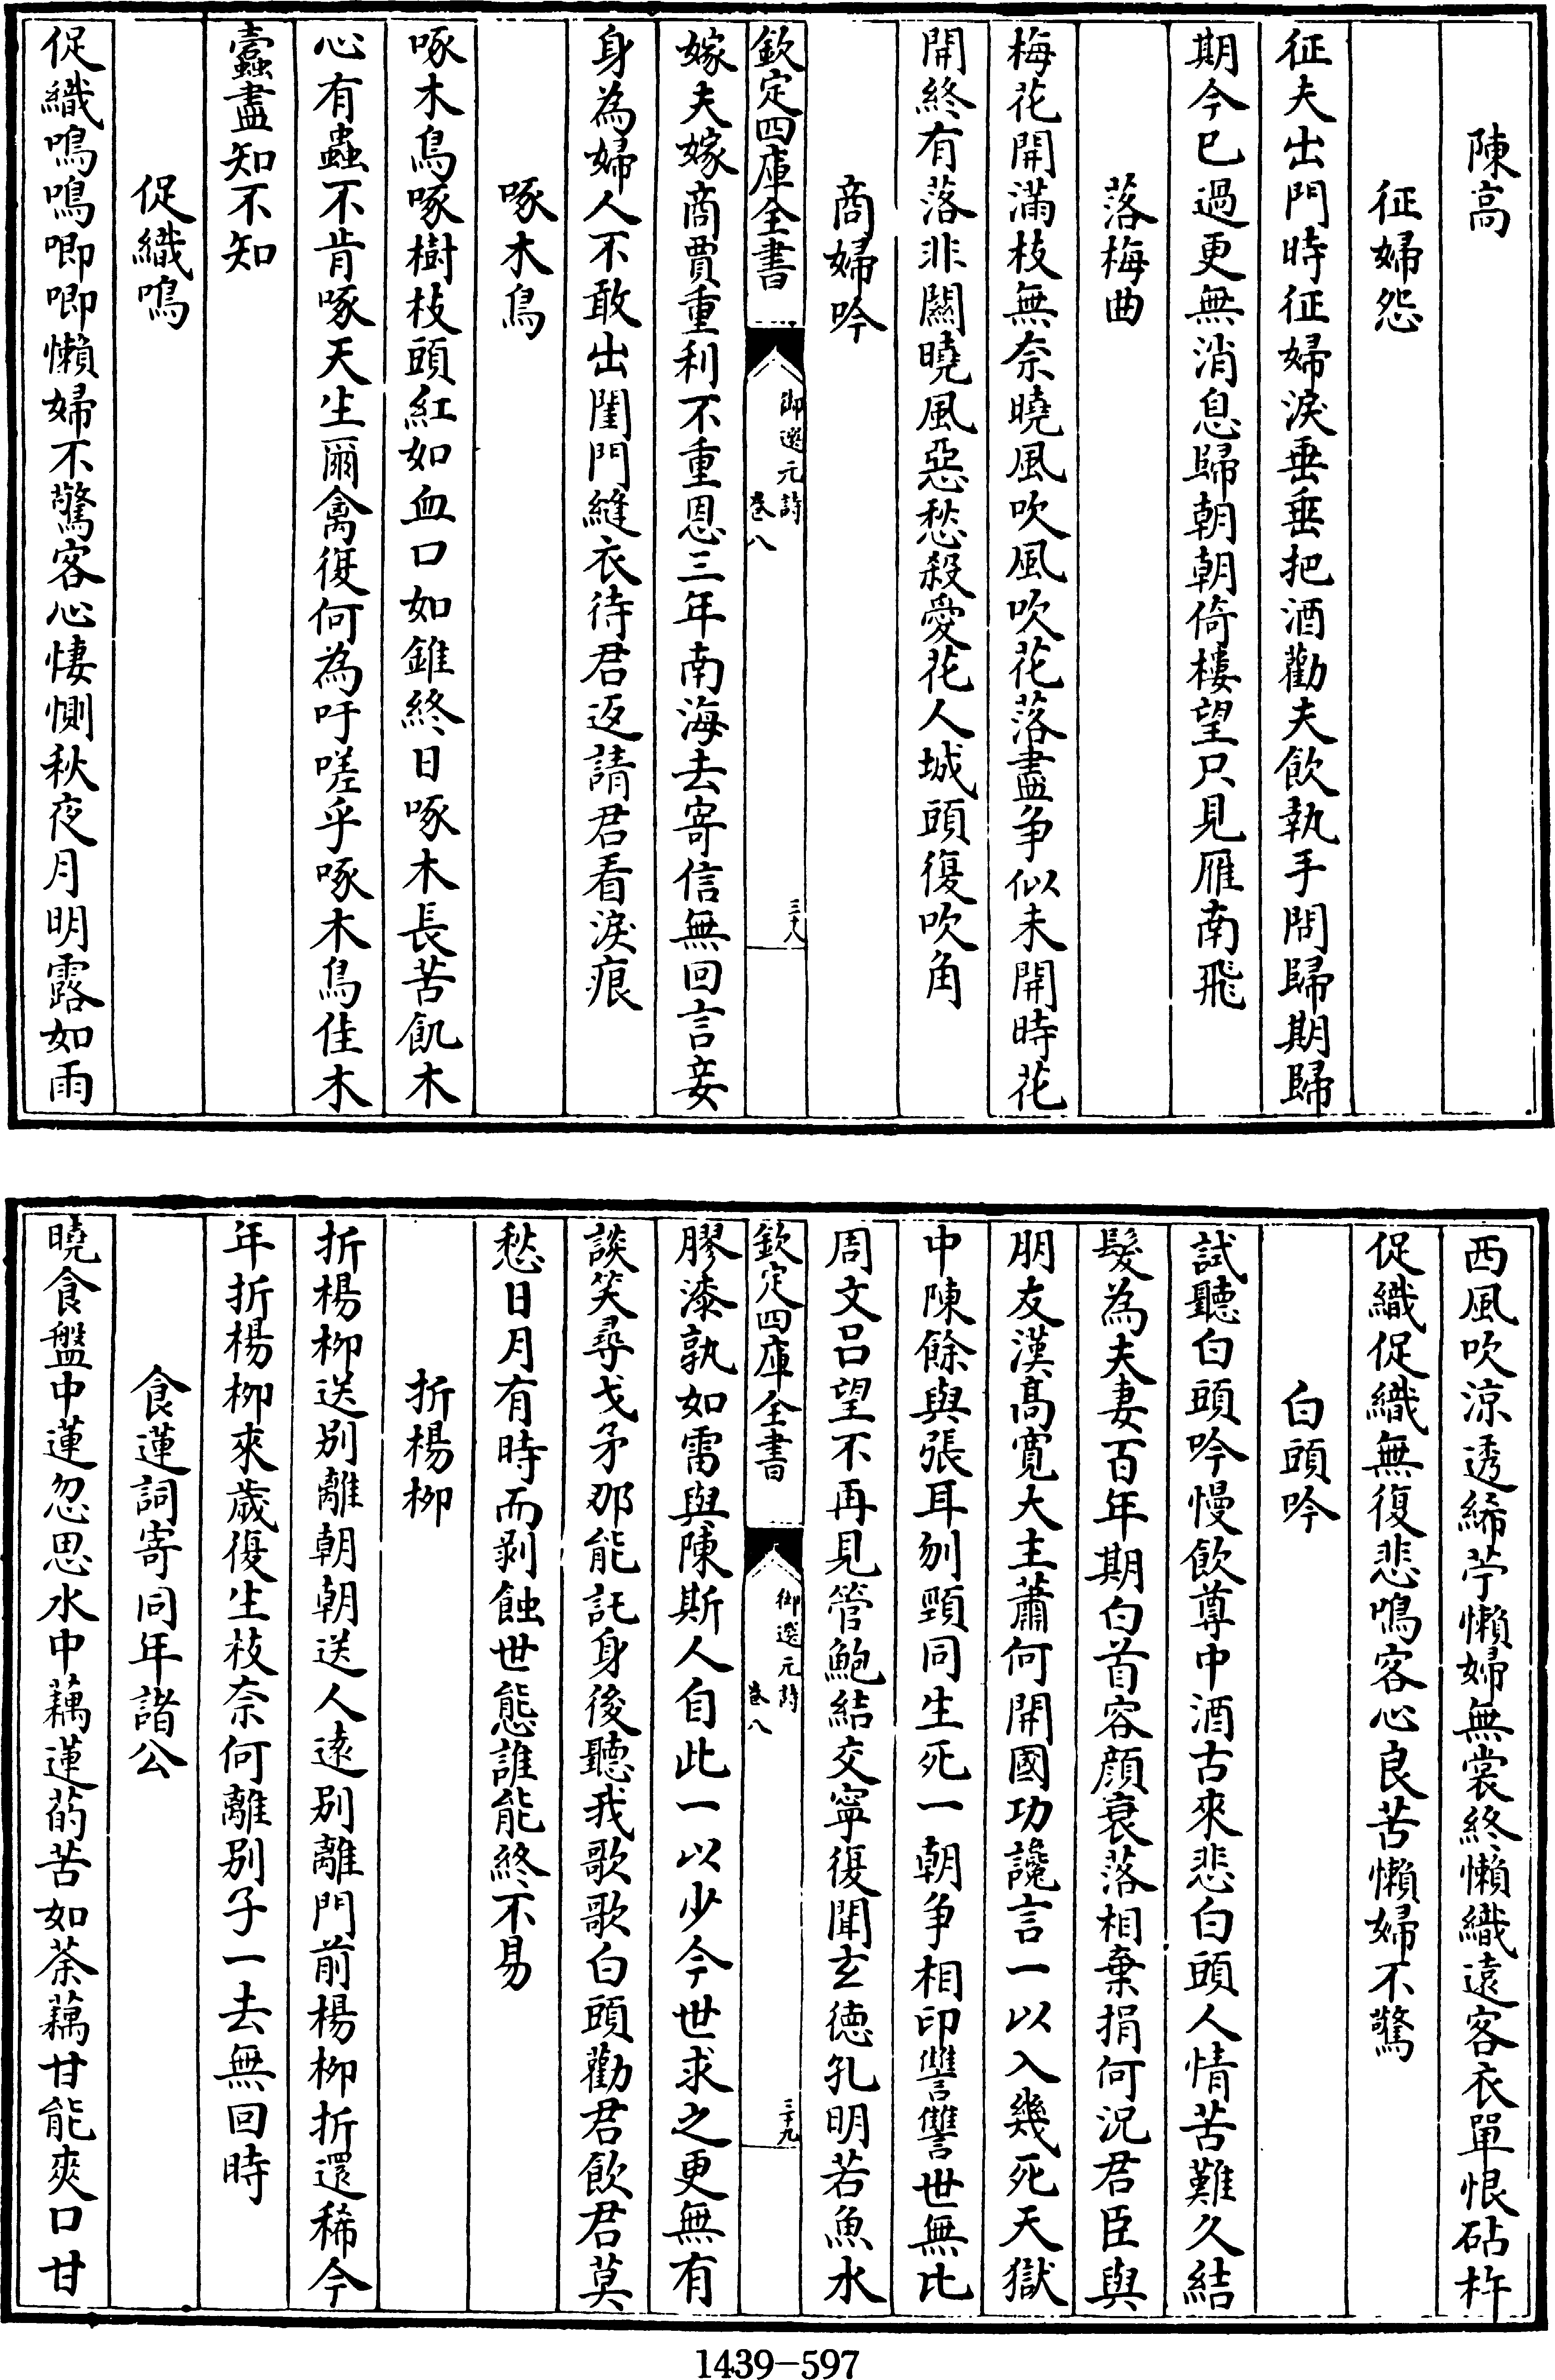 陳高
征婦怨
征夫出門時征婦淚垂垂把酒勸夫飲執手問歸期歸
期今已過更無消息歸朝朝倚樓望只見雁南飛
落梅曲
梅花開滿枝無奈曉風吹風吹花落盡争似未開時花
開終有落非闗曉風惡愁殺愛花人城頭復吹角
商婦吟
欽定四庫全書
御選元詩
卷八
三十八
嫁夫嫁商賈重利不重恩三年南海去寄信無回言妾
身為婦人不敢出閨門縫衣待君返請君看淚痕
啄木鳥
啄木鳥啄樹枝頭紅如血口如錐終日啄木長苦飢木
心有蟲不肯啄天生爾禽復何為吁嗟乎啄木鳥佳木
蠧盡知不知
促織鳴
促織鳴鳴唧唧懶婦不驚客心悽惻秋夜月明露如雨
西風吹涼透絺苧懶婦無裳終懶織遠客衣單恨砧杵
促織促織無復悲鳴客心良苦懶婦不驚
白頭吟
試聽白頭吟慢飲尊中酒古來悲白頭人情苦難久結
髮為夫妻百年期白首容顔衰落相棄捐何況君臣與
朋友漢髙寛大主蕭何開國功讒言一以入幾死天獄
中陳餘與張耳刎頸同生死一朝争相印讐讐世無比
周文吕望不再見管鮑結交寧復聞玄徳孔明若魚水
欽定四庫全書
御選元詩
卷八
三十九
膠漆孰如雷與陳斯人自此一以少今世求之更無有
談笑尋戈矛那能託身後聽我歌歌白頭勸君飲君莫
愁日月有時而剥蝕世態誰能終不易
折楊栁
折楊栁送别離朝朝送人逺别離門前楊栁折還稀今
年折楊栁來歲復生枝奈何離别子一去無回時
食蓮詞寄同年諸公
曉食盤中蓮忽思水中藕蓮菂苦如荼藕甘能爽口甘
1439-597